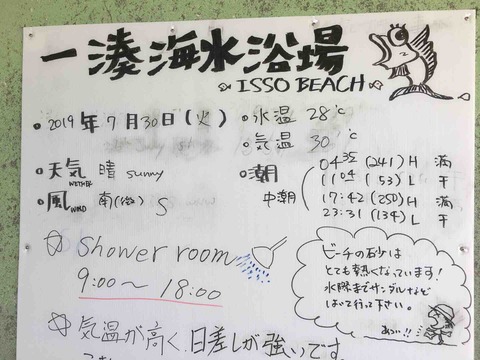 一湊海水浴場
ISSO BEACH
2019年7月30日(火)
水温 28℃
気温 30℃
天気 晴 sunny
WETHER
風 南(微) S
WIND
潮
中潮
04:35 (241) H 満
11:04 (53) L 干
17:42 (250) H 満
23:31 (134) L 干
Shower room
9:00〜18:00
ビーチの砂は
とても熱くなっています!
水際までサンダルなど
はいて行って下さい。
あつい!!
気温が高く、日差しが強いです